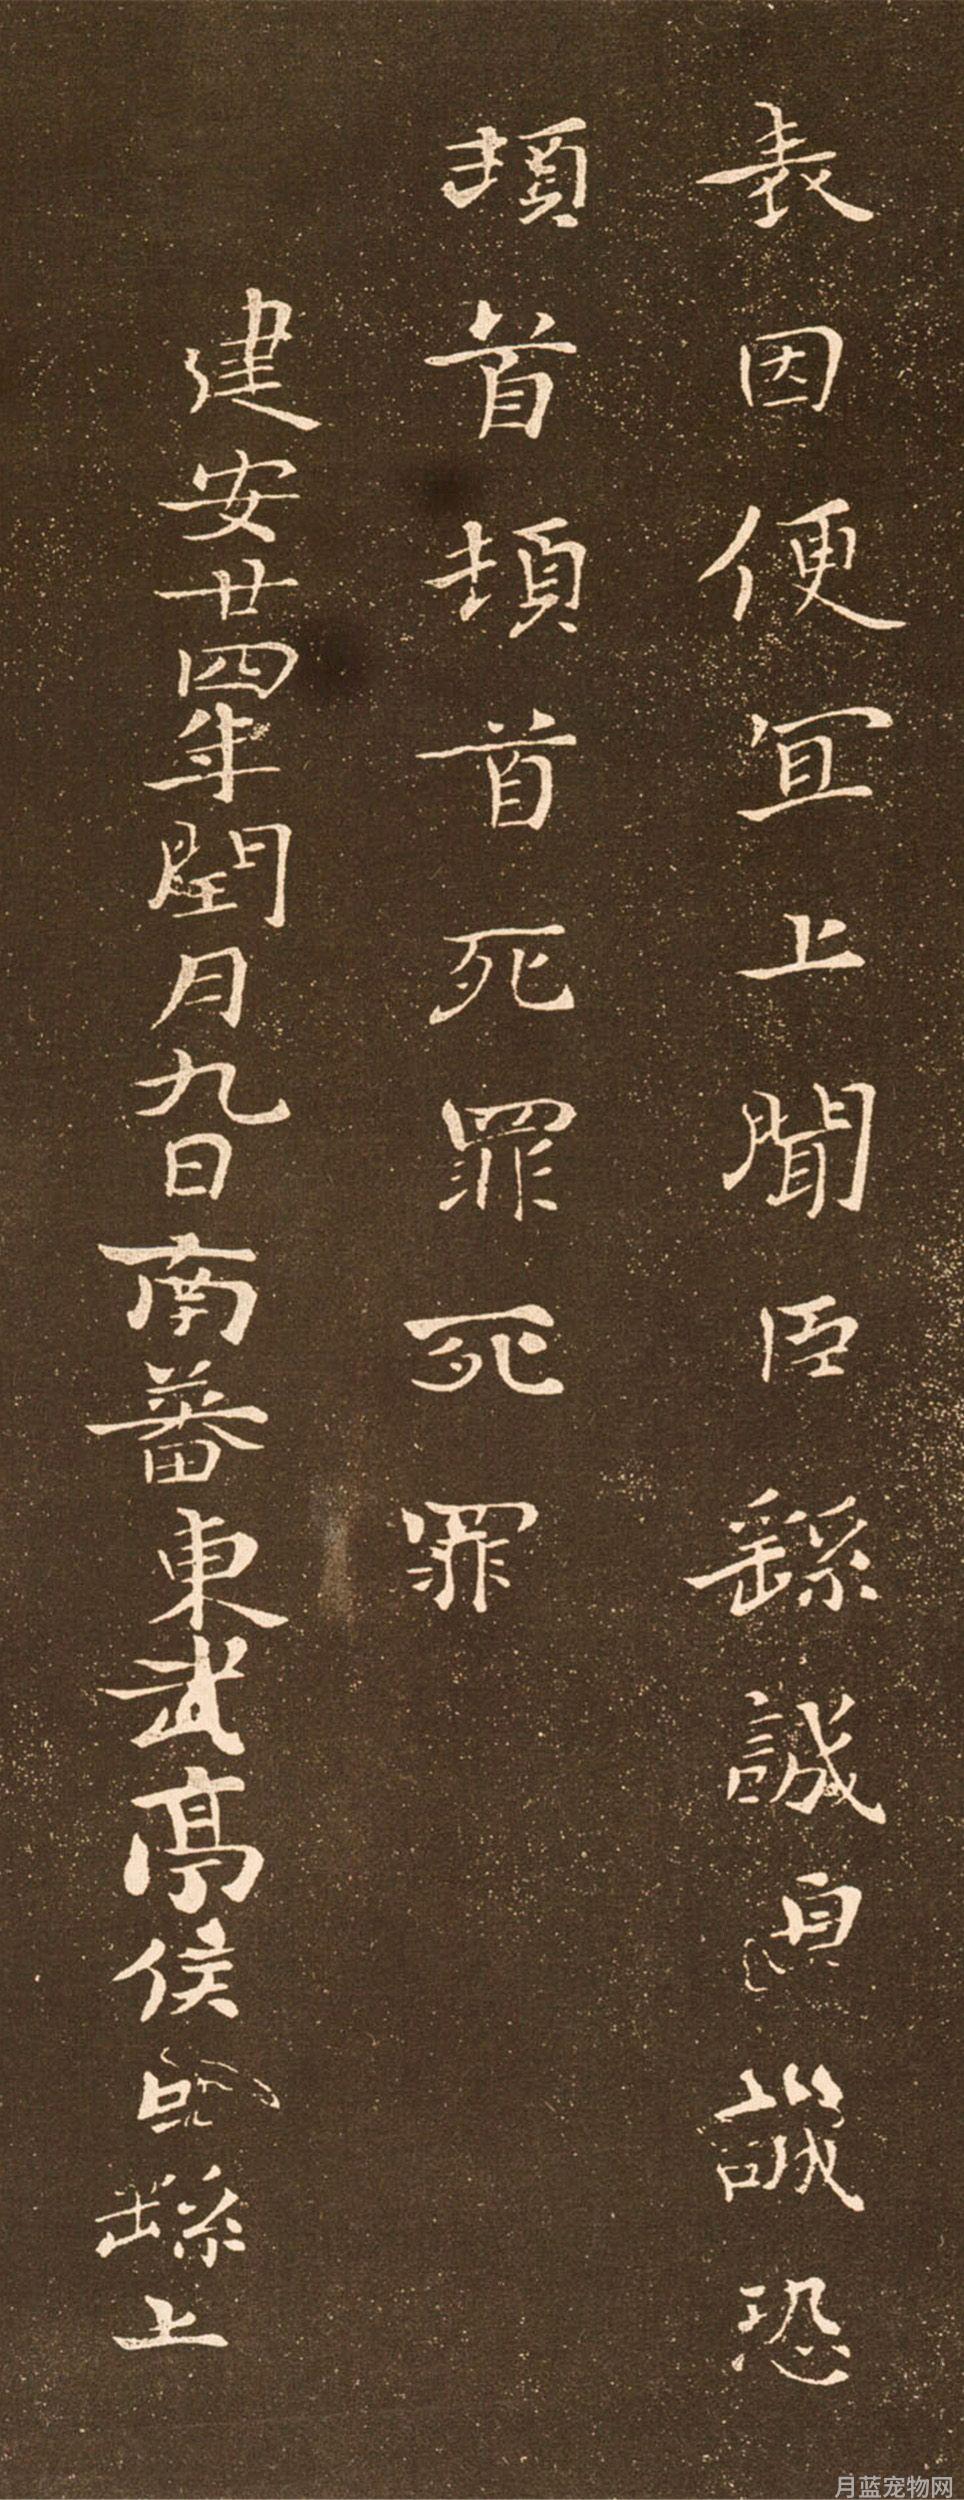 表因便宜上聞臣繇誠皇誠恐
頓首頓首死罪死罪
建安廿四年閏月九日南蕃東武亭侯臣繇上
月蓝宠物网